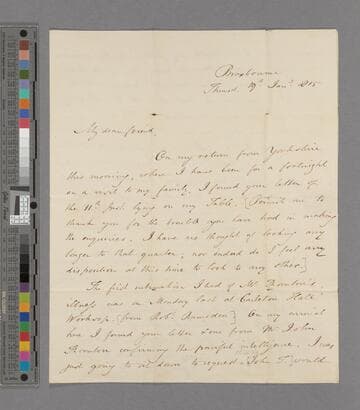 Broxbourne
Thursd. 19th Jany. 1815
My dear friend,
On my return from Yorkshire
this morning, where I have been for a fortnight
on a visit to my family, I found your letter of
the 11th Inst. lying on my Table. Permit me to
thank you for the trouble you have had in making
the enquiries. I have no thought of looking any
longer to that quarter; nor indeed do I feel any
disposition at this time to look to any other.]
The first intimation I had of Mr. Bramton's
illness was on Monday last at Carlton Hall
Worksop. [from Robt. Ramsden] On my arrival
here I found your letter & one from Mr. John
Bramton confirming the painful intelligence. I was
just going to sit down to request John T. would